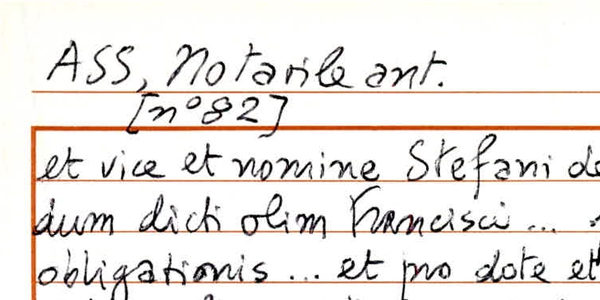 ASS, Notarile ant.
[n° 82]
et vice et nomine Stefani de
dum dicti olim Francisci ...
obligationis ... et pro dote et